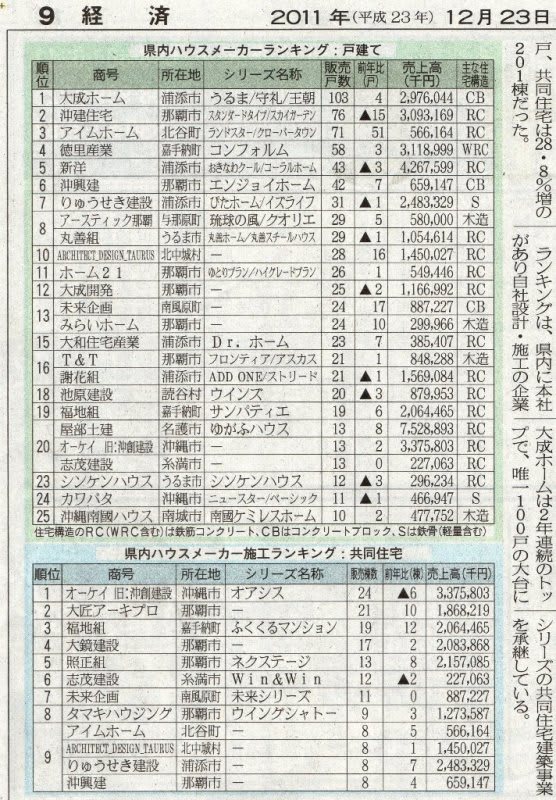 9 経済 2011年(平成23年)12月23日
県内ハウスメーカーランキング:戸建て
順位 商号 所在地 シリーズ名称 販売戸数 前年比(戸) 売上高(千円) 主な住宅構造
1 大成ホーム 浦添市 うるま/守礼/王朝 103 4 2,976,044 CB
2 沖建住宅 那覇市 スタンダードタイプ/スカイガーデン 76 ▲15 3,093,169 RC
3 アイムホーム 北谷町 ランドスター/クローバータウン 71 51 566,164 RC
4 徳里産業 嘉手納町 コンフォルム 58 3 3,118,999 WRC
5 新洋 浦添市 おきなわクール/コーラルホーム 43 ▲3 4,267,599 RC
6 沖興建 那覇市 エンジョイホーム 42 7 659,147 CB
7 りゅうせき建設 浦添市 ぴたホーム/イズライフ 31 ▲1 2,483,329 S
8 アースティック那覇 与那原町 琉球の風/クオリエ 29 5 580,000 木造
丸善組 うるま市 丸善ホーム/丸善スチールハウス 29 ▲1 1,054,614 RC
10 ARCHITECT_DESIGN_TAURUS 北中城村 − 28 16 1,450,027 RC
11 ホーム21 那覇市 ゆとりプラン/ハイグレードプラン 26 1 549,446 RC
12 大成開発 那覇市 − 25 ▲2 1,166,992 RC
13 未来企画 南風原町 − 24 17 887,227 CB
みらいホーム 那覇市 − 24 10 299,966 木造
15 大和住宅産業 浦添市 Dr.ホーム 23 7 385,407 RC
16 T&T 那覇市 フロンティア/アスカス 21 1 848,288 木造
謝花組 浦添市 ADD ONE/ストリード 21 ▲1 1,569,084 RC
18 池原建設 読谷村 ウインズ 20 ▲3 879,953 RC
19 福地組 嘉手納町 サンパティエ 19 6 2,064,465 RC
20 屋部土建 名護市 ゆがふハウス 13 8 7,528,893 RC
オーケイ 旧:沖創建設 沖縄市 − 13 2 3,375,803 RC
志茂建設 糸満市 − 13 0 227,063 RC
23 シンケンハウス うるま市 シンケンハウス 12 ▲3 296,234 RC
24 カワバタ 沖縄市 ニュースター/ベーシック 11 ▲1 466,947 S
25 沖縄南國ハウス 南城市 南國ケミレスホーム 10 2 477,752 木造
住宅構造のRC(WRC含む)は鉄筋コンクリート、CBはコンクリートブロック、Sは鉄骨(軽量含む)
県内ハウスメーカー施工ランキング:共同住宅
順位 商号 所在地 シリーズ名称 販売棟数 前年比(棟) 売上高(千円)
1 オーケイ 旧:沖創建設 沖縄市 オアシス 24 ▲6 3,375,803
2 大匠アーキプロ 那覇市 − 21 10 1,868,219
3 福地組 嘉手納町 ふくくるマンション 19 12 2,064,465
4 大鏡建設 那覇市 − 17 2 2,083,868
5 照正組 那覇市 ネクステージ 13 8 2,157,085
6 志茂建設 糸満市 Win&Win 12 ▲2 227,063
7 未来企画 南風原町 未来シリーズ 11 0 887,227
8 タマキハウジング 那覇市 ウイングシャトー 9 3 1,273,587
9 アイムホーム 北谷町 − 8 5 566,164
ARCHITECT_DESIGN_TAURUS 北中城村 − 8 1 1,450,027
りゅうせき建設 浦添市 − 8 7 2,483,329
沖興建 那覇市 − 8 4 659,147
戸、共同住宅は28・8%増の
201棟だった。
ランキングは、県内に本社
があり自社設計・施工の企業
大成ホームは2年連続のトッ
プで、唯一100戸の大台に
シリーズの共同住宅建築事業
を承継している。